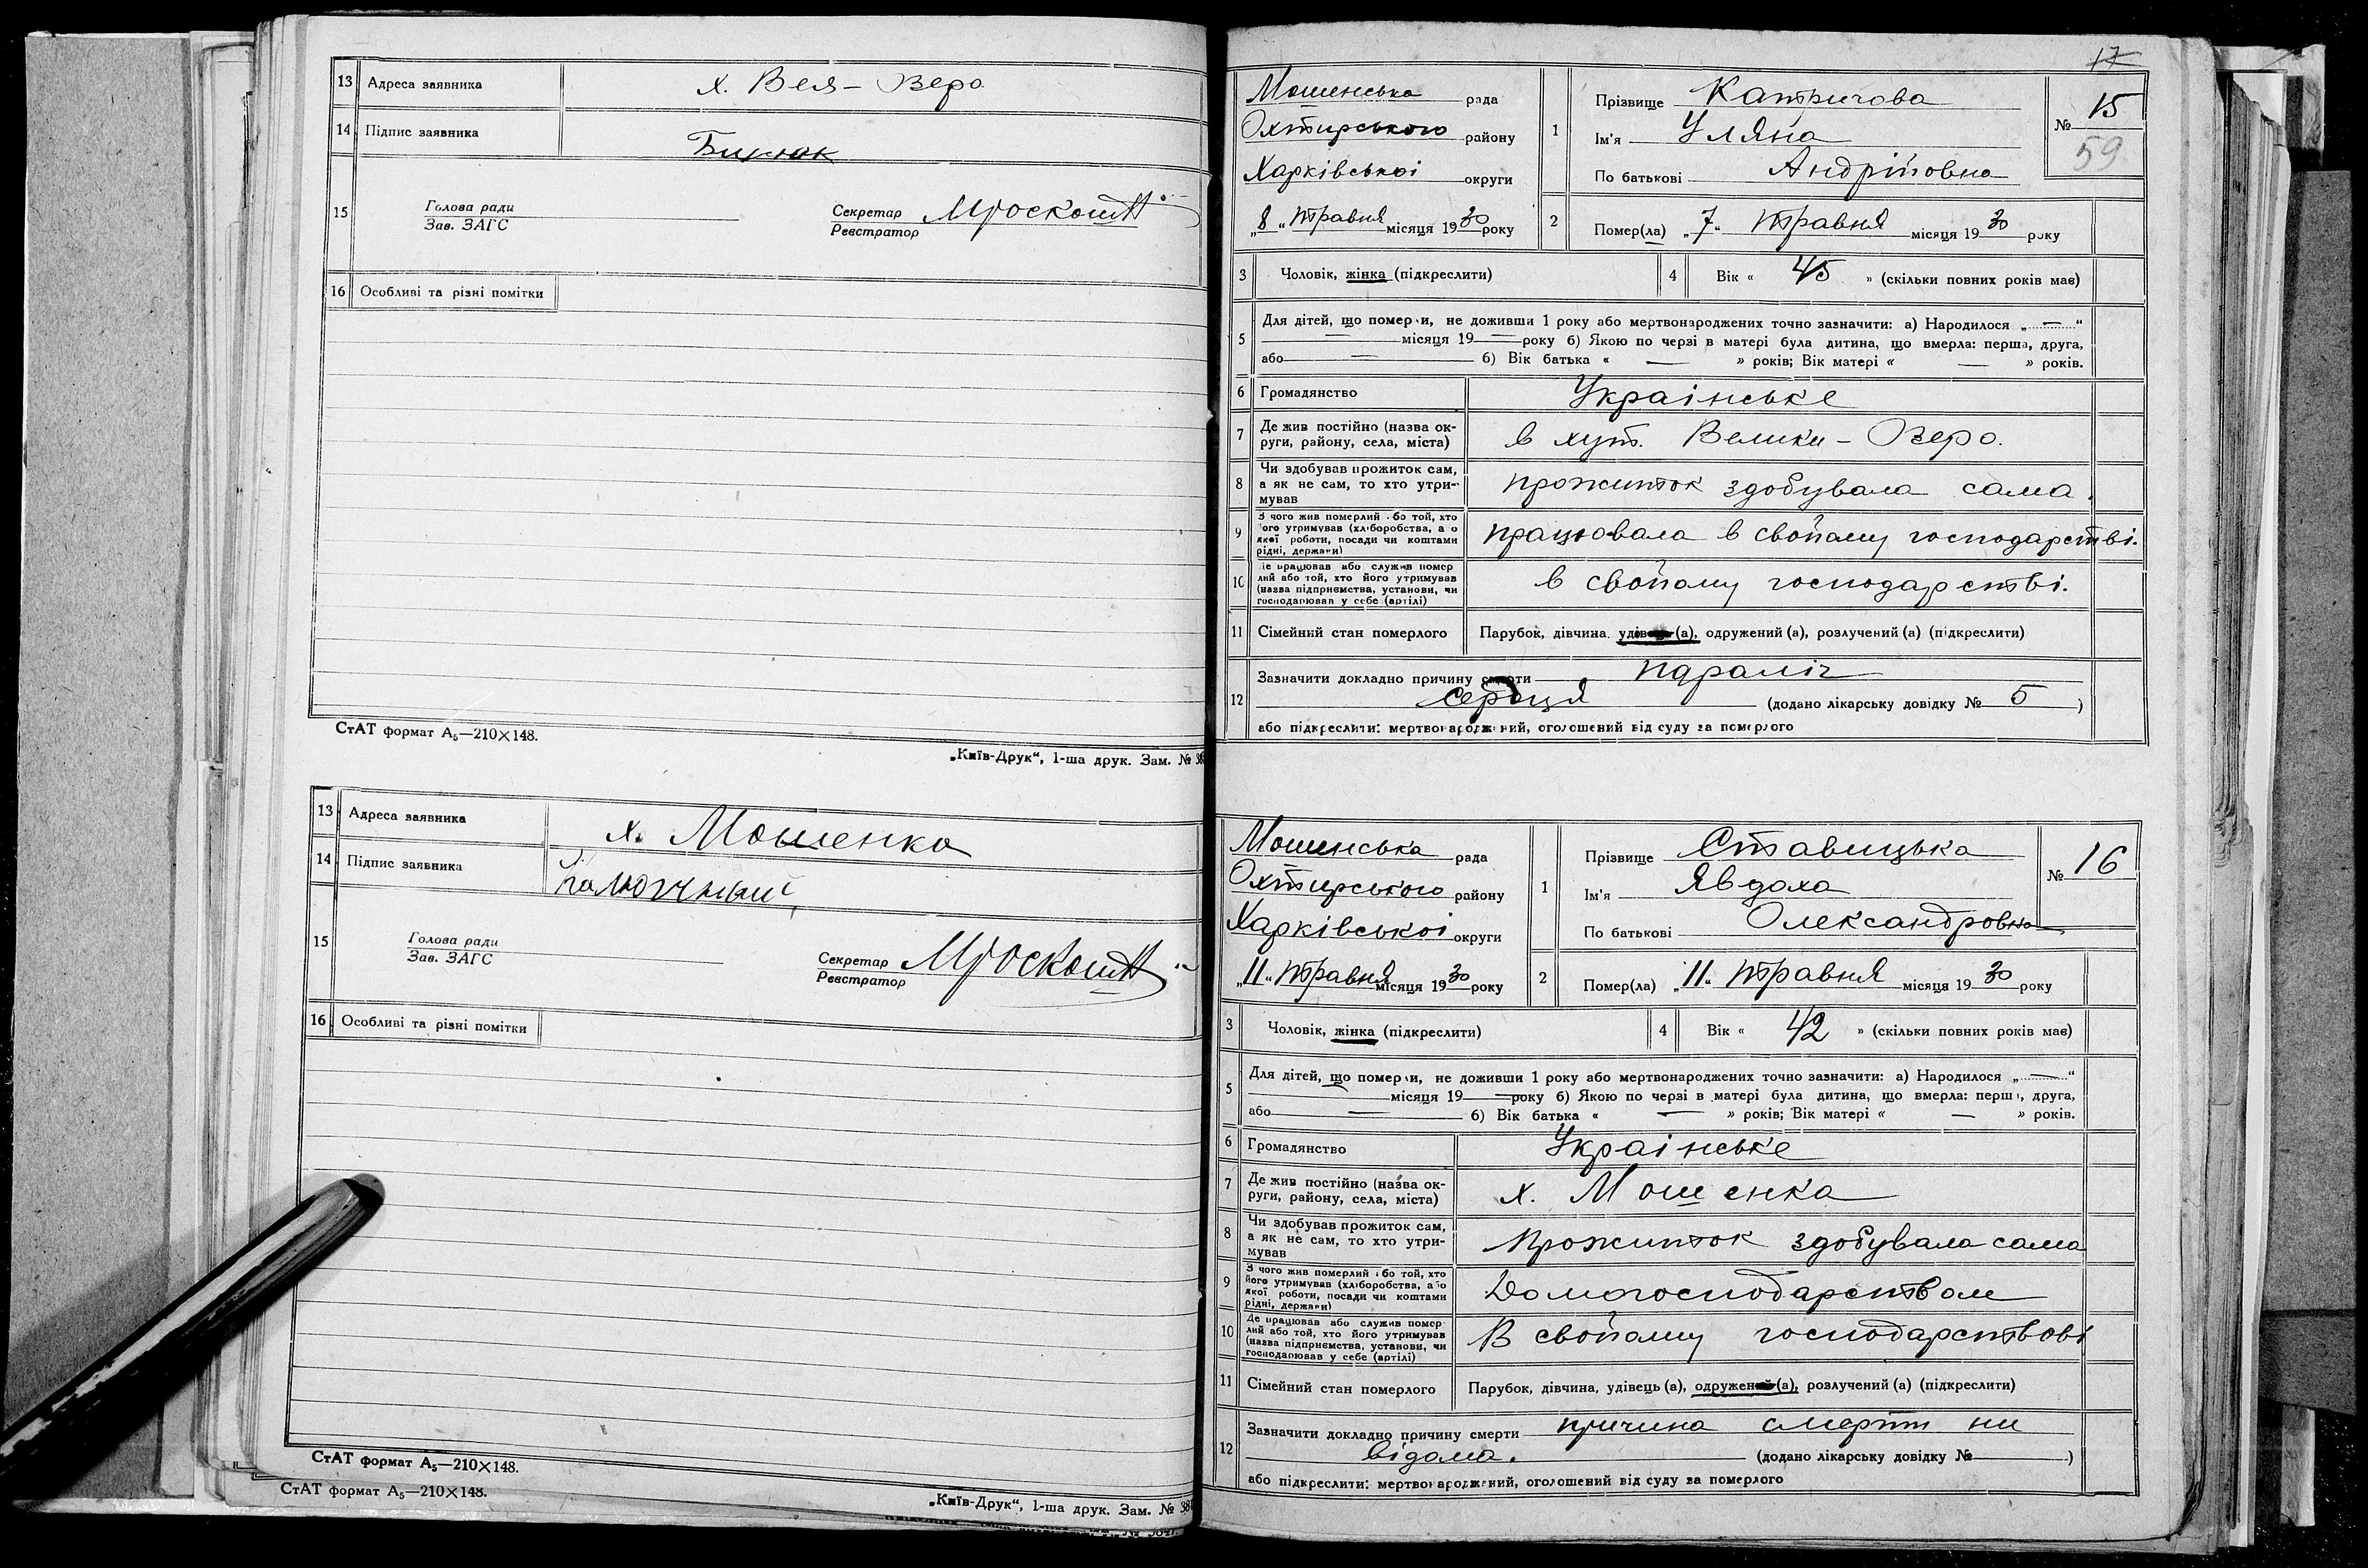 13 Адреса заявника х. Вел – Озеро
14 Підпис заявника Бирюк
15 Голова ради
Зав. ЗАГС
Секретар
Реєстратор
16 Особливі та різні помітки
СтАТ формат А₅—210×148.
„Київ-Друк“, 1-ша друк. Зам. № 38
13 Адреса заявника х. Мошенка
14 Підпис заявника
15 Голова ради
Зав. ЗАГС
Секретар
Реєстратор
16 Особливі та різні помітки
СтАТ формат А₅—210×148.
СтАТ формат А₅—210×148.
„Київ-Друк“, 1-ша друк. Зам. № 38
17
Мошенська рада
Охтирського району
Харківської округи
„8“ травня місяця 1930 року
1 Прізвище Катричова
Ім'я Уляна
По батькові Андрійовна
№ 15
59
2 Помер(ла) „7“ травня місяця 1930 року
3 Чоловік, жінка (підкреслити)
4 Вік « 45 » (скільки повних років має)
5 Для дітей, що померли, не доживши 1 року або мертвонароджених точно зазначити: а) Народилося „ — “
— місяця 19 — року б) Якою по черзі в матері була дитина, що вмерла: перша, друга,
або — б) Вік батька « — » років; Вік матері « — » років.
6 Громадянство Українське
7 Де жив постійно (назва ок-
руги, району, села, міста) в хут. Велики – Озеро.
8 Чи здобував прожиток сам,
а як не сам, то хто утри-
мував прожиток здобувала сама.
9 З чого жив померлий або той, хто
його утримував (хліборобства, або
якої роботи, посади чи коштами
рідні, держави) працювала в свойому господарстві.
10 Де працював або служив помер
лий або той, хто його утримував
(назва підприємства, установи, чи
господарював у себе (артілі) в свойому господарстві.
11 Сімейний стан померлого Парубок, дівчина, удівець (а), одружений (а), розлучений (а) (підкреслити)
12 Зазначити докладно причину смерти параліч
серция (додано лікарську довідку № 5 )
або підкреслити: мертвонароджений, оголошений від суду за померлого
Мошенська рада
Охтирського району
Харківської округи
„11“ травня місяця 1930 року
1 Прізвище Ставицька
Ім'я Явдоха
По батькові Олександровна
№ 16
2 Помер(ла) „11“ травня місяця 1930 року
3 Чоловік, жінка (підкреслити)
4 Вік « 42 » (скільки повних років має)
5 Для дітей, що померли, не доживши 1 року або мертвонароджених точно зазначити: а) Народилося „ — “
місяця 19 — року б) Якою по черзі в матері була дитина, що вмерла: перша, друга,
або — б) Вік батька « — » років; Вік матері « — » років.
6 Громадянство Українське
7 Де жив постійно (назва ок-
руги, району, села, міста) х. Мошенка
8 Чи здобував прожиток сам,
а як не сам, то хто утри-
мував прожиток здобувала сама
9 З чого жив померлий або той, хто
його утримував (хліборобства, або
якої роботи, посади чи коштами
рідні, держави) Домогосподарством
10 Де працював або служив помер
лий або той, хто його утримував
(назва підприємства, установи, чи
господарював у себе (артілі) В свойому господарствові
11 Сімейний стан померлого Парубок, дівчина, удівець (а), одружений (а), розлучений (а) (підкреслити)
12 Зазначити докладно причину смерти причина смерти ни
відома. (додано лікарську довідку № )
або підкреслити: мертвонароджений, оголошений від суду за померлого